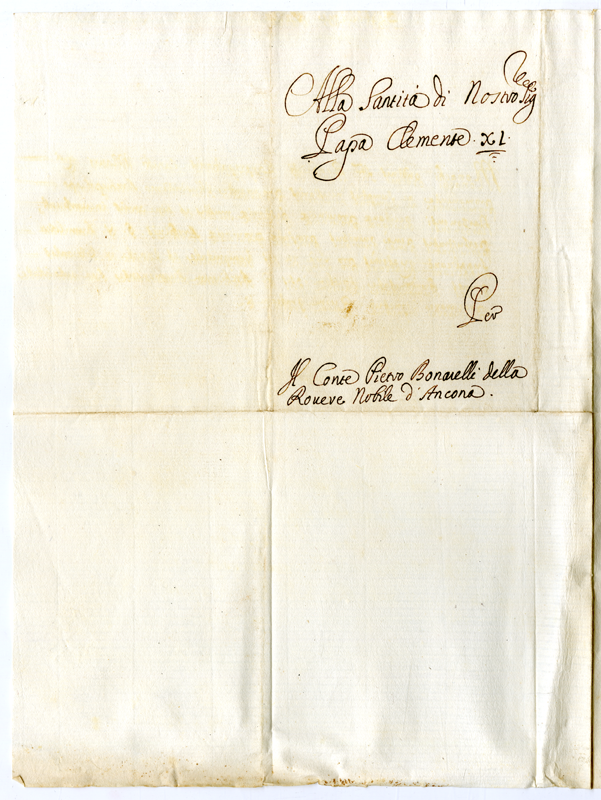 Alla Santità di Nostro Sig^re
Papa Clemente XI.
Per
Il Conte Pietro Bonarelli della
Rovere Nobile d'Ancona.